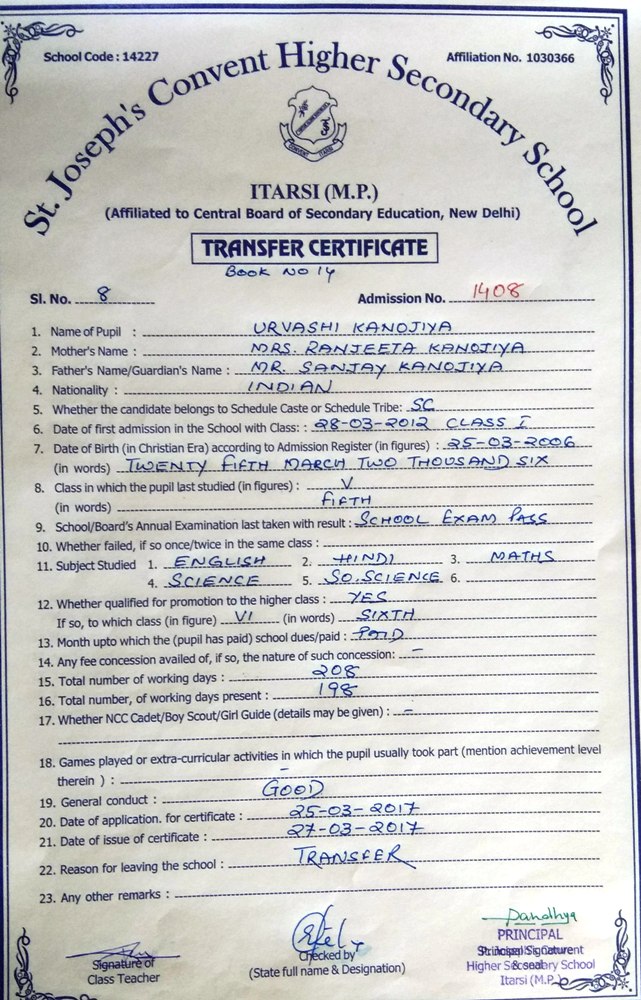 School Code : 14227
Affiliation No. 1030366
St. Joseph's Convent Higher Secondary School
ITARSI (M.P.)
(Affiliated to Central Board of Secondary Education, New Delhi)
TRANSFER CERTIFICATE
BOOK NO 14
Sl. No. 8
Admission No. 1408
1. Name of Pupil : URVASHI KANOJIYA
2. Mother's Name : MRS. RANJEETA KANOJIYA
3. Father's Name/Guardian's Name : MR. SANJAY KANOJIYA
4. Nationality : INDIAN
5. Whether the candidate belongs to Schedule Caste or Schedule Tribe: SC
6. Date of first admission in the School with Class: : 28-03-2012 CLASS I
7. Date of Birth (in Christian Era) according to Admission Register (in figures) : 25-03-2006
(in words) TWENTY FIFTH MARCH TWO THOUSAND SIX
8. Class in which the pupil last studied (in figures) : V
(in words) FIFTH
9. School/Board's Annual Examination last taken with result : SCHOOL EXAM PASS
10. Whether failed, if so once/twice in the same class :
11. Subject Studied 1. ENGLISH 2. HINDI 3. MATHS
4. SCIENCE 5. SO.SCIENCE 6.
12. Whether qualified for promotion to the higher class : YES
If so, to which class (in figure) VI (in words) SIXTH
13. Month upto which the (pupil has paid) school dues/paid : PAID
14. Any fee concession availed of, if so, the nature of such concession: -
15. Total number of working days : 208
16. Total number, of working days present : 198
17. Whether NCC Cadet/Boy Scout/Girl Guide (details may be given) : -
18. Games played or extra-curricular activities in which the pupil usually took part (mention achievement level
therein ) : -
19. General conduct : GOOD
20. Date of application. for certificate : 25-03-2017
21. Date of issue of certificate : 27-03-2017
22. Reason for leaving the school : TRANSFER
23. Any other remarks :
Signature of
Class Teacher
Checked by
(State full name & Designation)
PRINCIPAL
Higher Secondary School
Itarsi (M.P.)